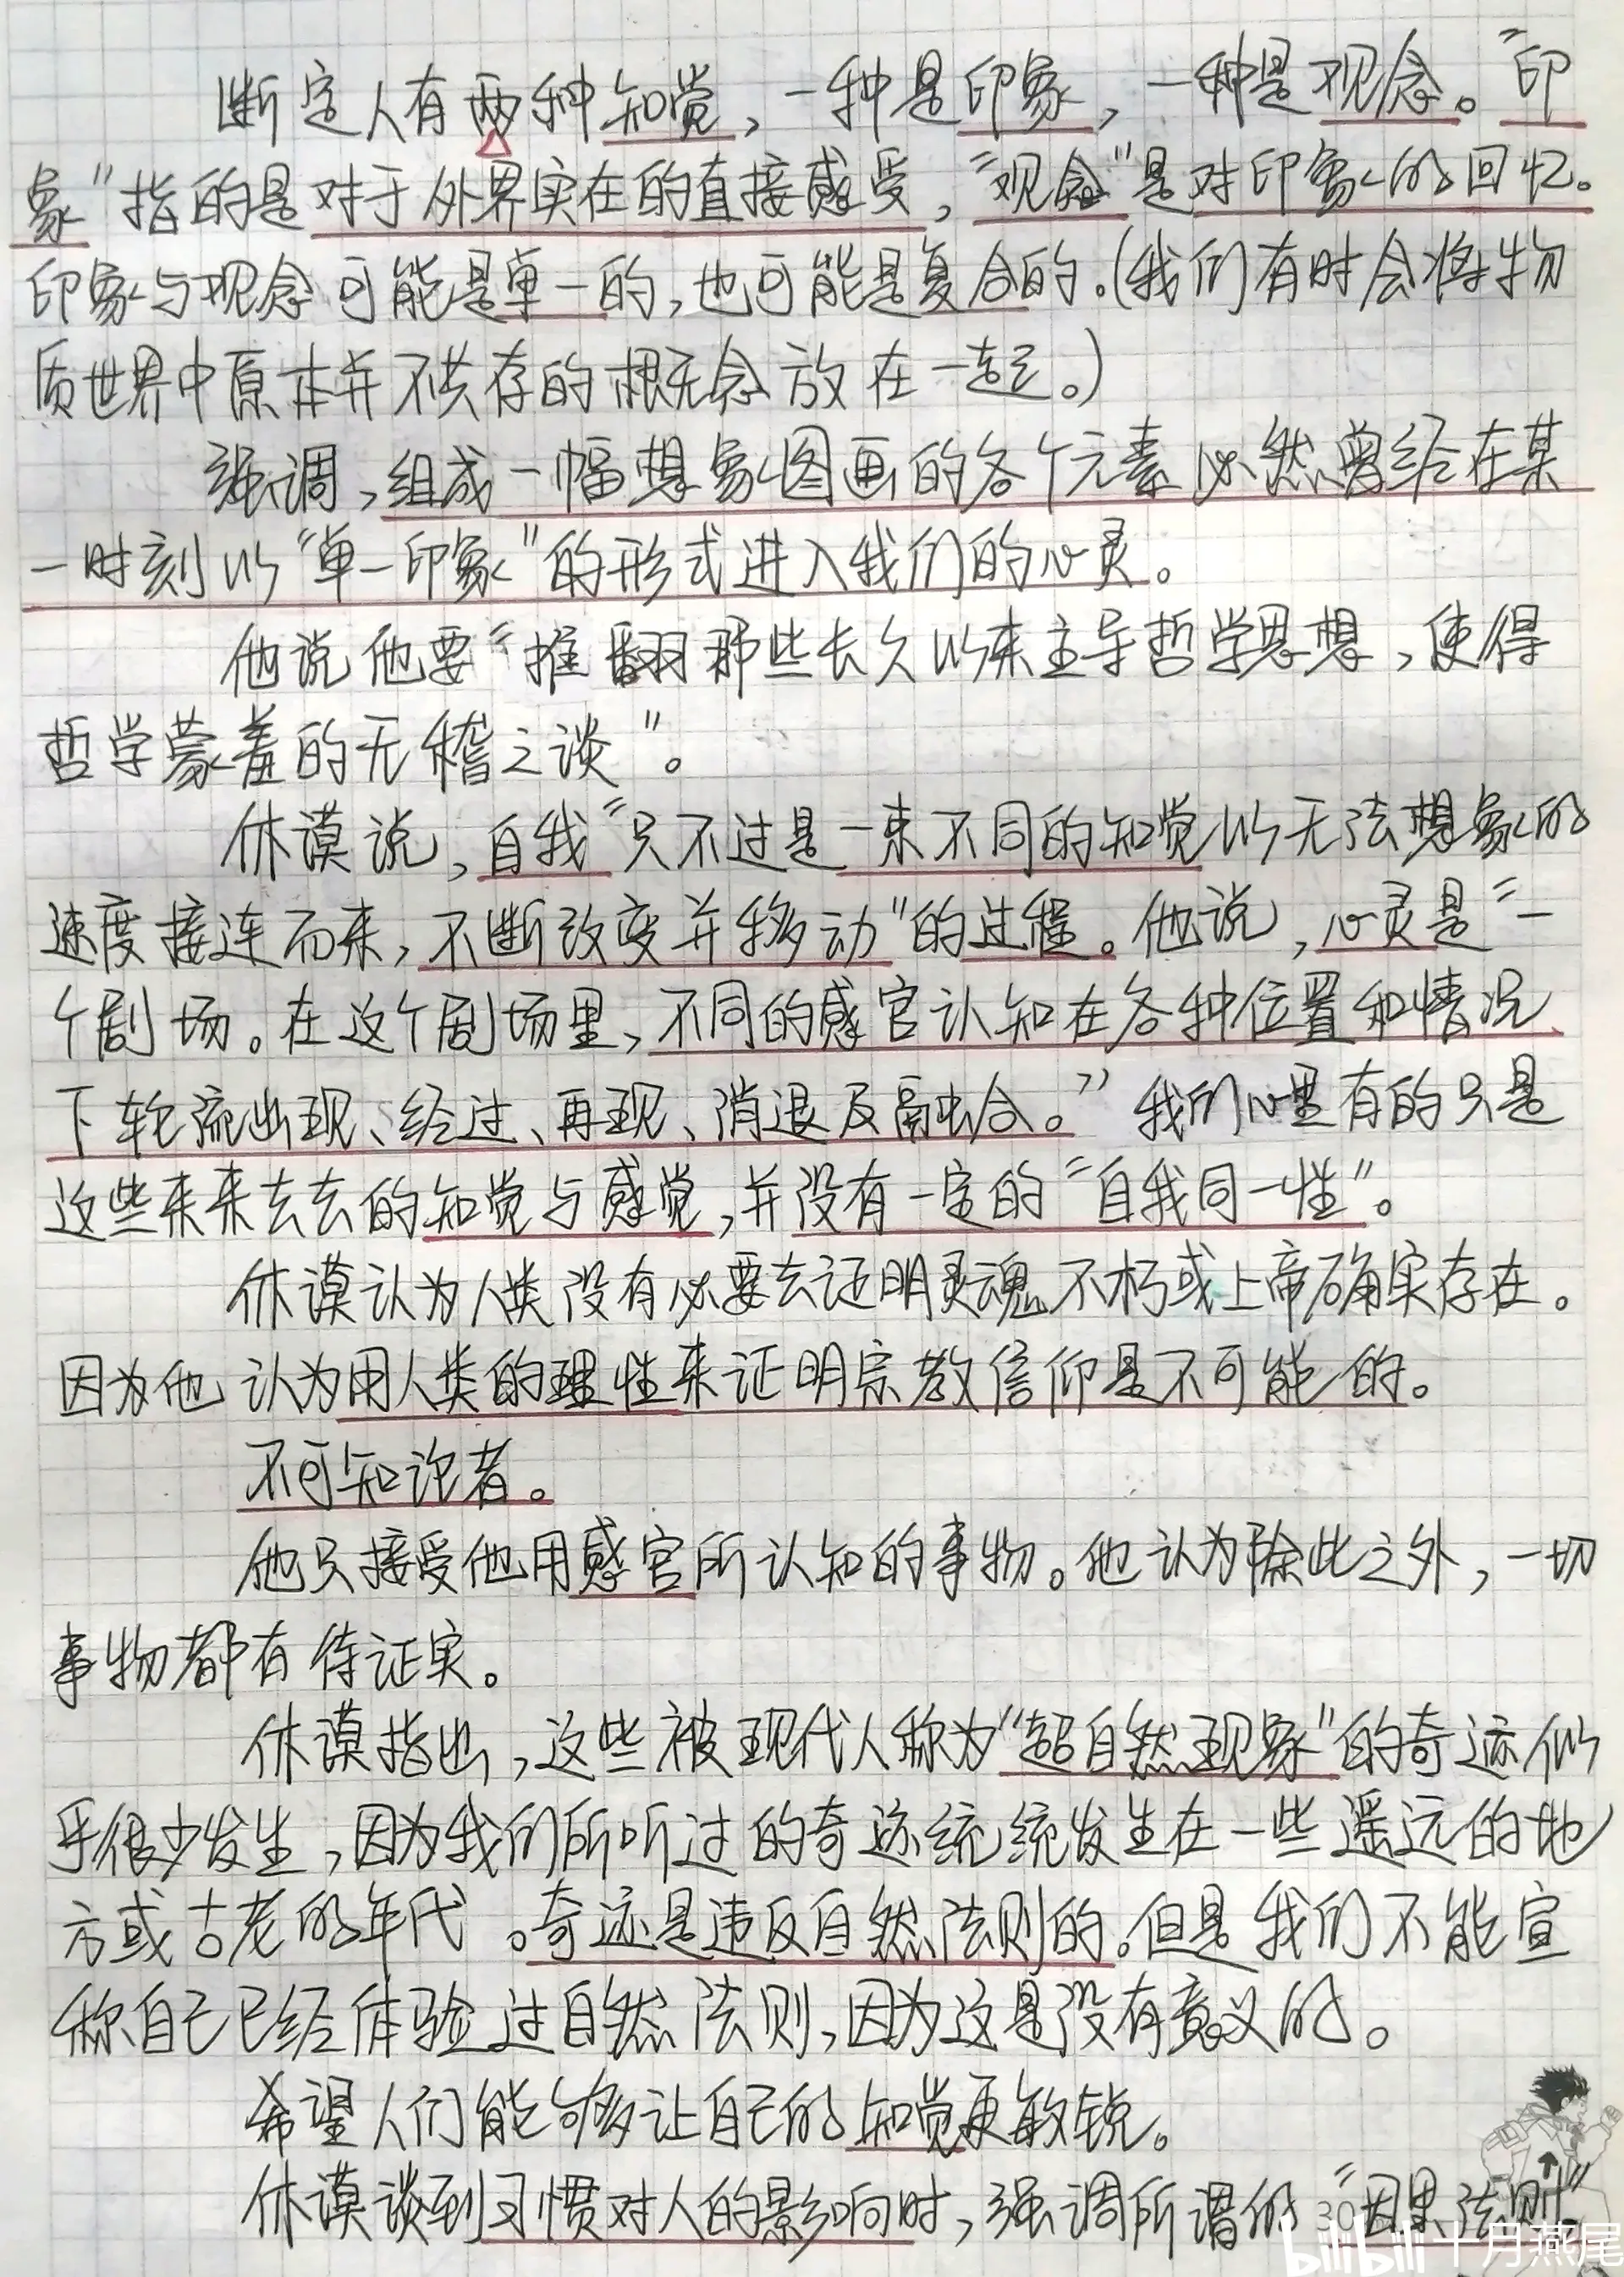 断定人有两种知觉，一种是印象，一种是观念。“印
象”指的是对于外界实在的直接感受，“观念”是对印象的回忆。
印象与观念可能是单一的，也可能是复合的.(我们有时会将物
质世界中原本并不共存的概念放在一起。)
强调，组成一幅想象图画的各个元素必然曾经在某
一时刻以“单一印象”的形式进入我们的心灵。
他说他要“推翻那些长久以来主导哲学思想，使得
哲学蒙羞的无稽之谈”。
休谟说，自我“只不过是一束不同的知觉以无法想象的
速度接连而来，不断改变并移动”的过程。他说，心灵是“一
个剧场。在这个剧场里，不同的感官认知在各种位置和情况
下轮流出现、经过、再现、消退及融合。”我们心里有的只是
这些来来去去的知觉与感觉，并没有一定的“自我同一性”。
休谟认为人类没有必要去证明灵魂不朽或上帝确实存在。
因为他认为用人类的理性来证明宗教信仰是不可能的。
不可知论者。
他只接受他用感官所认知的事物。他认为除此之外，一切
事物都有待证实。
休谟指出，这些被现代人称为“超自然现象”的奇迹似
乎很少发生，因为我们所听过的奇迹统统发生在一些遥远的地
方或古老的年代。奇迹是违反自然法则的。但是我们不能宣
称自己已经体验过自然法则，因为这是没有意义的。
希望人们能够让自己的知觉更敏锐。
休谟谈到习惯对人的影响时，强调所谓的“因果法则”
30
bilibili 十月燕尾